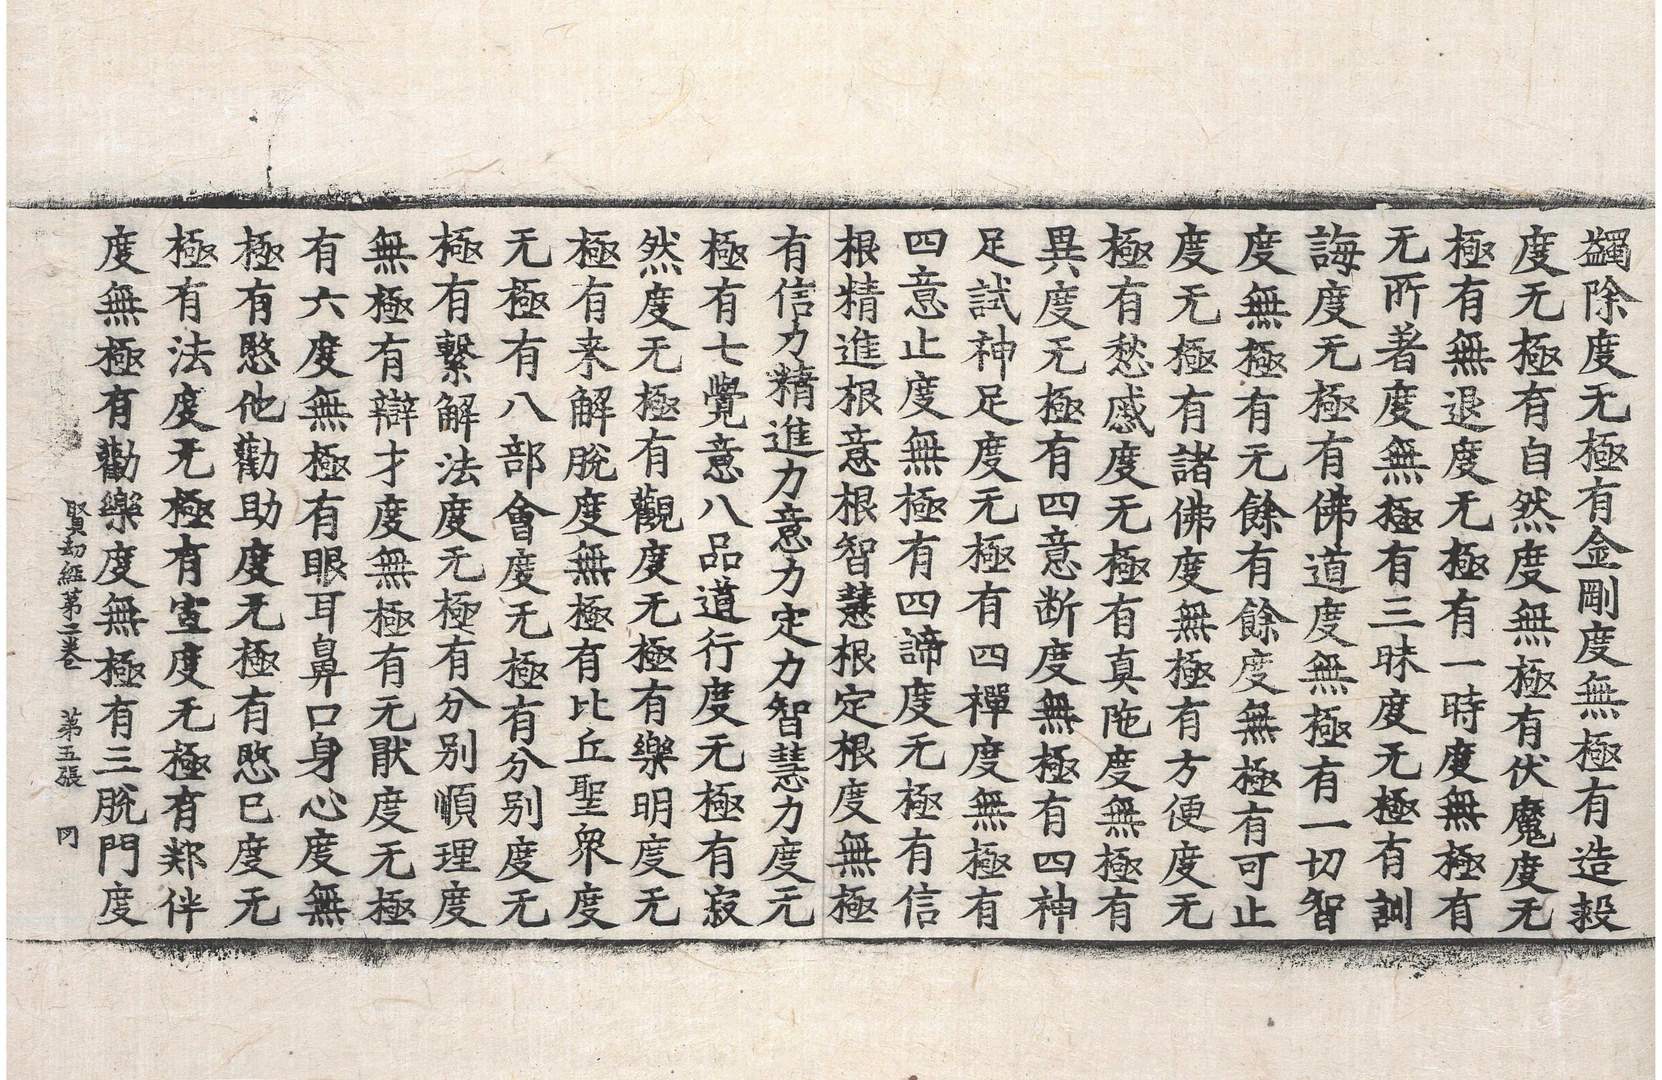 蠲除度无極有金剛度無極有造毅
度无極有自然度無極有伏魔度无
極有無退度无極有一時度無極有
无所著度無極有三昧度无極有訓
誨度无極有佛道度無極有一切智
度無極有无餘有餘度無極有可止
度无極有諸佛度無極有方便度无
極有愁慼度无極有真陁度無極有
異度无極有四意断度無極有四神
足試神足度无極有四禪度無極有
四意止度無極有四諦度无極有信
根精進根意根智慧根定根度無極
有信力精進力意力定力智慧力度无
極有七覺意八品道行度无極有寂
然度无極有觀度无極有樂明度无
極有来解脫度無極有比丘聖衆度
无極有八部會度无極有分别度无
極有繫解法度无極有分别順理度
無極有辯才度無極有无猒度无極
有六度無極有眼耳鼻口身心度無
極有愍他勸助度无極有愍己度无
極有法度无極有宣度无極有鄰伴
度無極有勸樂度無極有三脫門度
賢劫經第二卷 第五張 罔